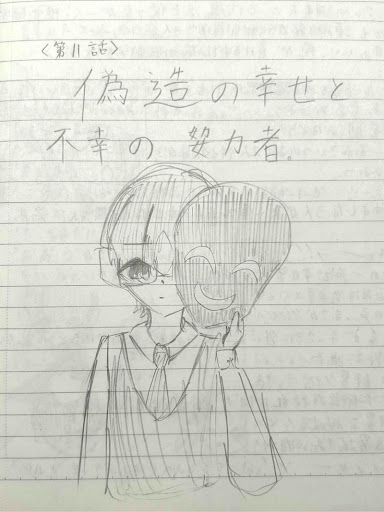 〈第11話〉
偽造の幸せと
不幸の努力者。